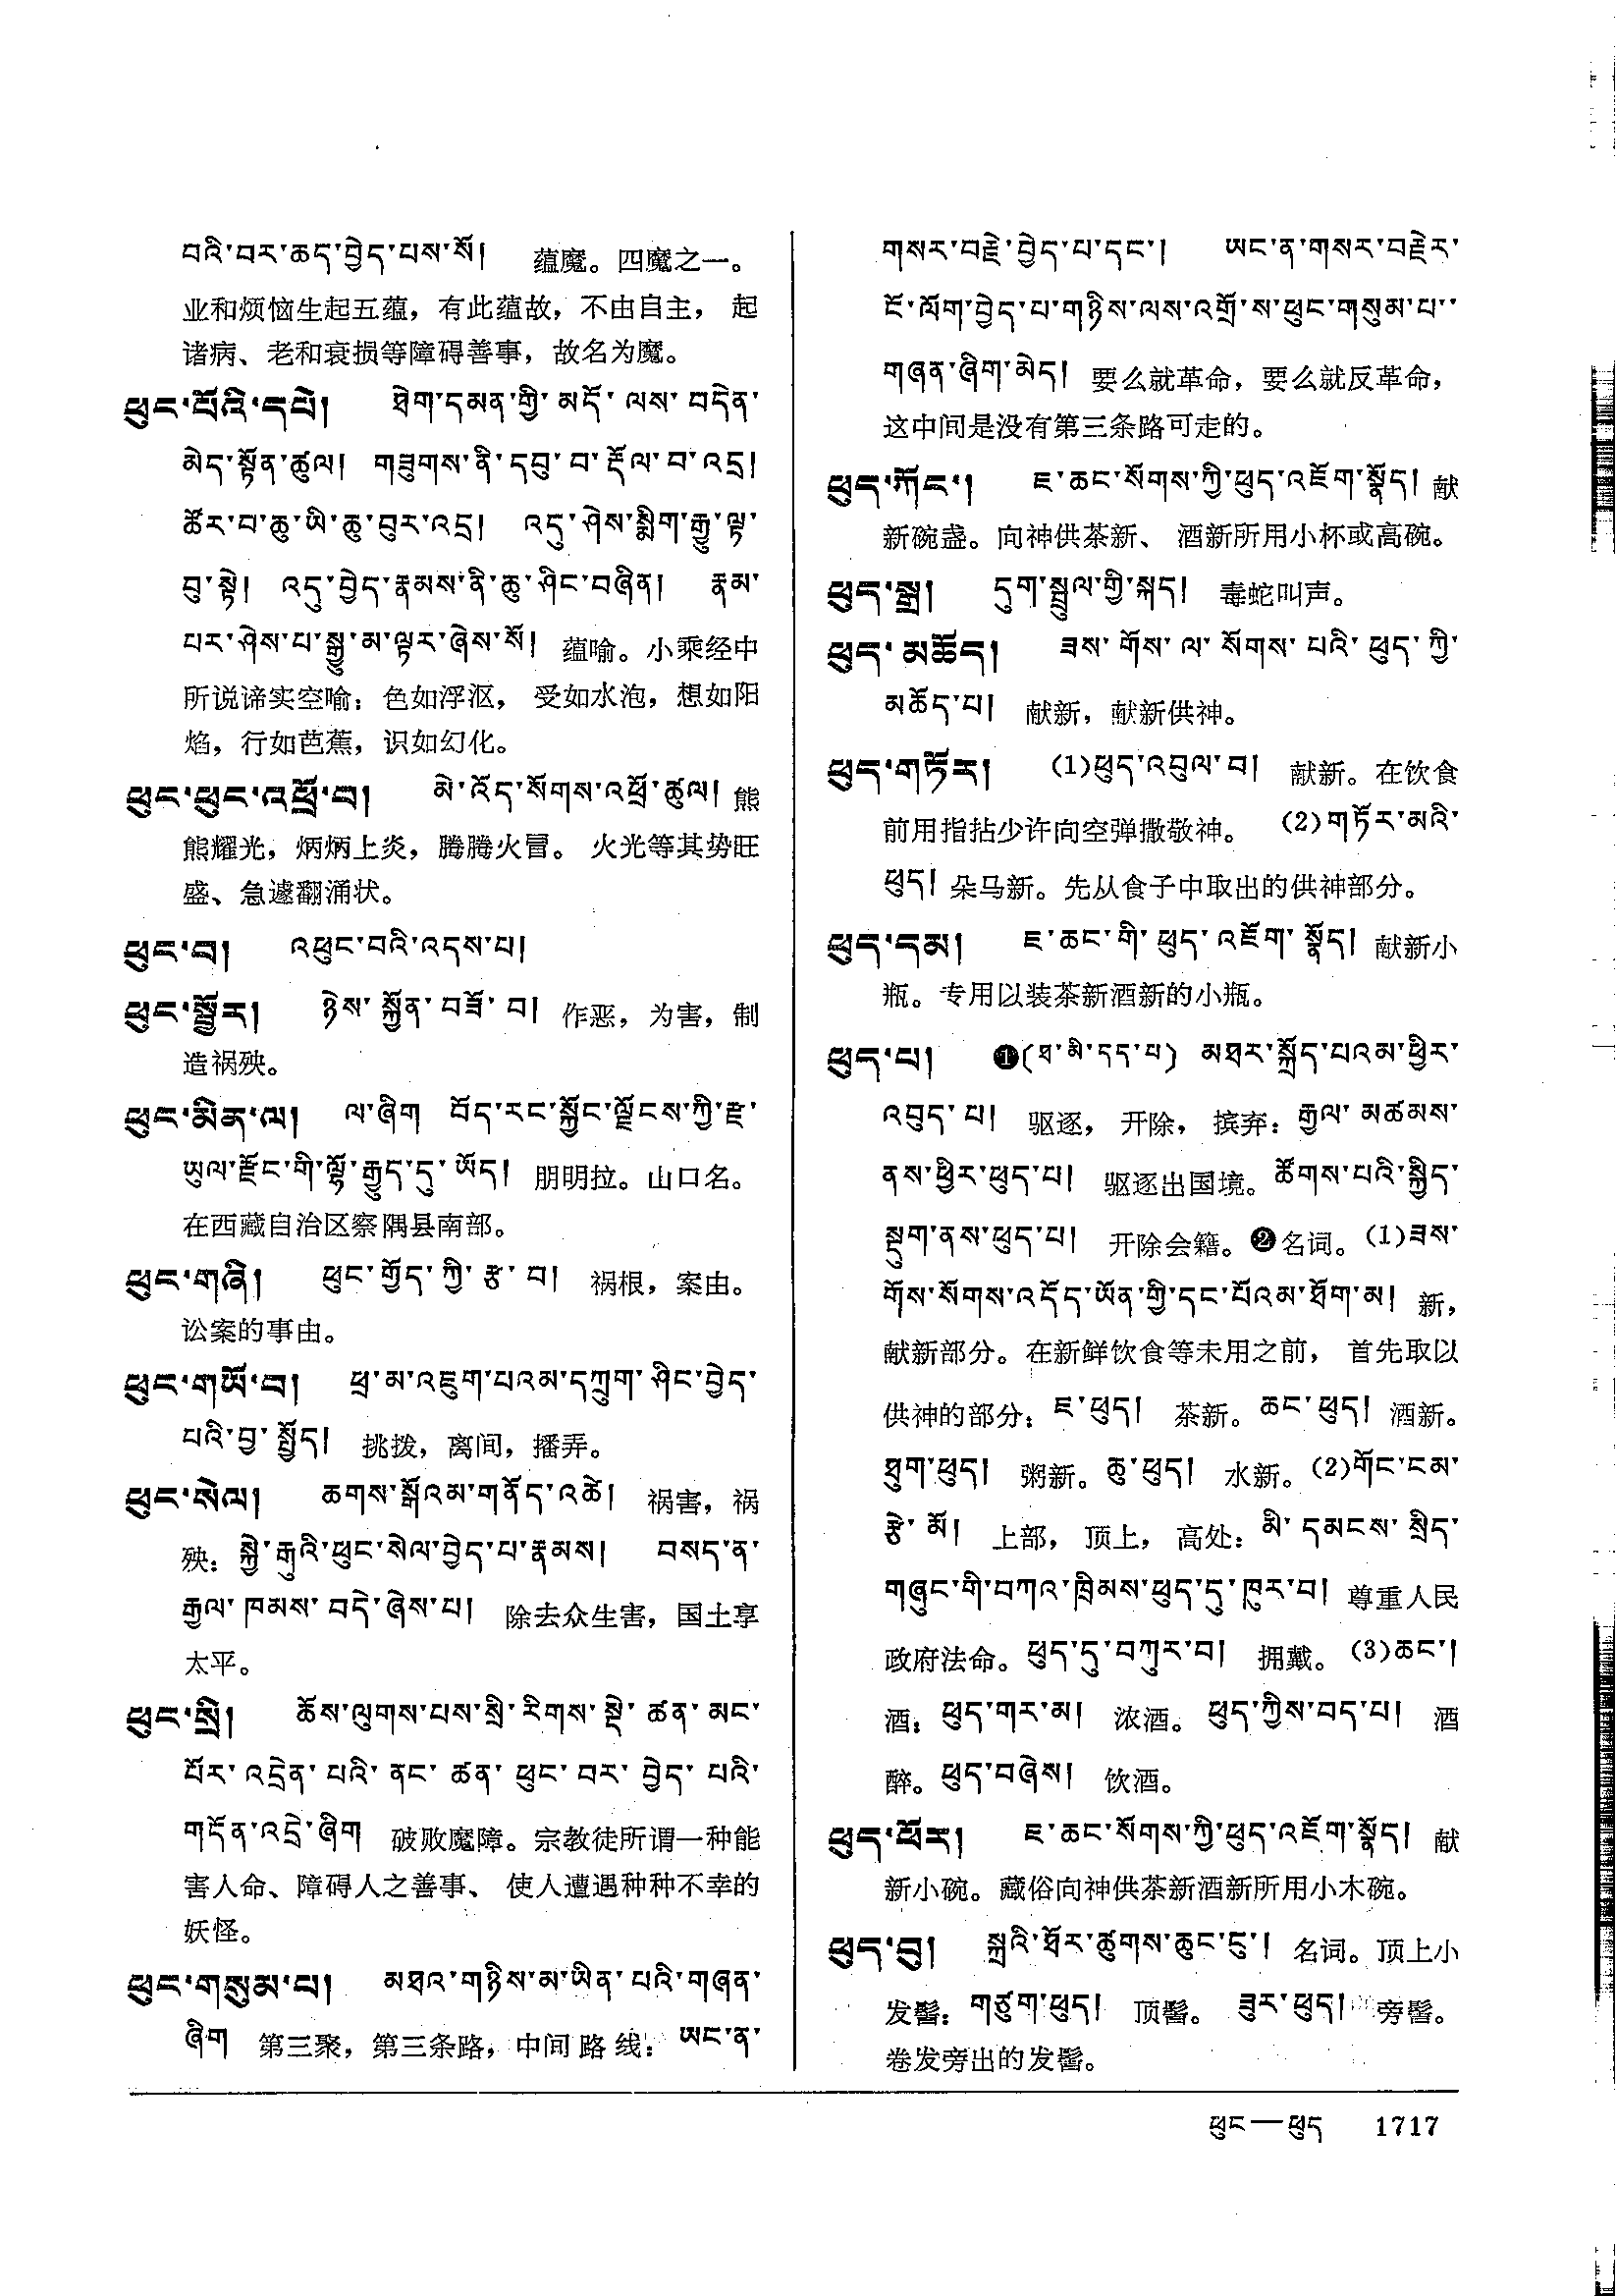 བའི་བར་ཆད་བྱེད་པས་སོ། 蕴魔。四魔之一。
业和烦恼生起五蕴，有此蕴故，不由自主，起
诸病、老和衰损等障碍善事，故名为魔。
ཕུང་པོའི་དཔེ། ཐེག་དམན་གྱི་མདོ་ལས་བདེན་
མེད་སྟོན་ཚུལ། གཟུགས་ནི་དབུ་བ་རྡོལ་བ་འདྲ།
ཚོར་བ་ཆུ་ཡི་ཆུ་བུར་འདྲ། འདུ་ཤེས་སྨིག་རྒྱུ་ལྟ་
བུ་སྟེ། འདུ་བྱེད་རྣམས་ནི་ཆུ་ཤིང་བཞིན། རྣམ་
པར་ཤེས་པ་སྒྱུ་མ་ལྟར་ཞེས་སོ། 蕴喻。小乘经中
所说谛实空喻：色如浮沤，受如水泡，想如阳
焰，行如芭蕉，识如幻化。
ཕུང་ཕུང་འཕྲོ་བ། མེ་འོད་སོགས་འཕྲོ་ཚུལ། 熊
熊耀光，炳炳上炎，腾腾火冒。火光等其势旺
盛、急遽翻涌状。
ཕུང་བ། འཕུང་བའི་འདས་པ།
ཕུང་སྦྱོར། ཉེས་སྐྱོན་བཟོ་བ། 作恶，为害，制
造祸殃。
ཕུང་མིན་ལ། ལ་ཞིག བོད་རང་སྐྱོང་ལྗོངས་ཀྱི་རྫ་
ཡུལ་རྫོང་གི་ལྷོ་རྒྱུད་དུ་ཡོད། 朋明拉。山口名。
在西藏自治区察隅县南部。
ཕུང་གཞི། ཕུང་གྱོད་ཀྱི་རྩ་བ། 祸根，案由。
讼案的事由。
ཕུང་གཡོ་བ། ཕྲ་མ་འཇུག་པའམ་དཀྲུག་ཤིང་བྱེད་
པའི་བྱ་སྤྱོད། 挑拨，离间，播弄。
ཕུང་སེལ། ཆགས་སྒོའམ་གནོད་འཚེ། 祸害，祸
殃：སྐྱེ་རྒུའི་ཕུང་སེལ་བྱེད་པ་རྣམས། བསད་ན་
རྒྱལ་ཁམས་བདེ་ཞེས་པ། 除去众生害，国土享
太平。
ཕུང་སྲི། ཆོས་ལུགས་པས་སྲི་རིགས་སྡེ་ཚན་མང་
པོར་འདྲེན་པའི་ནང་ཚན་ཕུང་བར་བྱེད་པའི་
གདོན་འདྲེ་ཞིག 破败魔障。宗教徒所谓一种能
害人命、障碍人之善事、使人遭遇种种不幸的
妖怪。
ཕུང་གསུམ་པ། མཐའ་གཉིས་མ་ཡིན་པའི་གཞན་
ཞིག 第三聚，第三条路，中间路线：ཡང་ན་
གསར་བརྗེ་བྱེད་པ་དང་། ཡང་ན་གསར་བརྗེར་
ངོ་ལོག་བྱེད་པ་གཉིས་ལས་འགྲོ་ས་ཕུང་གསུམ་པ་་
གཞན་ཞིག་མེད། 要么就革命，要么就反革命，
这中间是没有第三条路可走的。
ཕུད་ཀོང་། ཇ་ཆང་སོགས་ཀྱི་ཕུད་འཇོག་སྣོད། 献
新碗盏。向神供茶新、酒新所用小杯或高碗。
ཕུད་སྒྲ། དུག་སྦྲུལ་གྱི་སྐད། 毒蛇叫声。
ཕུད་མཆོད། ཟས་གོས་ལ་སོགས་པའི་ཕུད་ཀྱི་
མཆོད་པ། 献新，献新供神。
ཕུད་གཏོར། (1)ཕུད་འབུལ་བ། 献新。在饮食
前用指拈少许向空弹撒敬神。(2)གཏོར་མའི་
ཕུད། 朵马新。先从食子中取出的供神部分。
ཕུད་དམ། ཇ་ཆང་གི་ཕུད་འཇོག་སྣོད། 献新小
瓶。专用以装茶新酒新的小瓶。
ཕུད་པ། ❶(ཐ་མི་དད་པ) མཐར་སྐྲོད་པའམ་ཕྱིར་
འབུད་པ། 驱逐，开除，摈弃：རྒྱལ་མཚམས་
ནས་ཕྱིར་ཕུད་པ། 驱逐出国境。ཚོགས་པའི་སྐྱིད་
སྡུག་ནས་ཕུད་པ། 开除会籍。❷名词。(1)ཟས་
གོས་སོགས་འདོད་ཡོན་གྱི་དང་པོའམ་ཐོག་མ། 新，
献新部分。在新鲜饮食等未用之前，首先取以
供神的部分：ཇ་ཕུད། 茶新。ཆང་ཕུད། 酒新。
ཐུག་ཕུད། 粥新。ཆུ་ཕུད། 水新。(2)གོང་ངམ་
རྩེ་མོ། 上部，顶上，高处：མི་དམངས་སྲིད་
གཞུང་གི་བཀའ་ཁྲིམས་ཕུད་དུ་ཁུར་བ། 尊重人民
政府法命。ཕུད་དུ་བཀུར་བ། 拥戴。(3)ཆང་།
酒：ཕུད་གར་མ། 浓酒。ཕུད་ཀྱིས་བད་པ། 酒
醉。ཕུད་བཞེས། 饮酒。
ཕུད་ཕོར། ཇ་ཆང་སོགས་ཀྱི་ཕུད་འཇོག་སྣོད། 献
新小碗。藏俗向神供茶新酒新所用小木碗。
ཕུད་བུ། སྐྲའི་ཐོར་ཚུགས་ཆུང་ངུ་། 名词。顶上小
发髻：གཙུག་ཕུད། 顶髻。ཟུར་ཕུད། 旁髻。
卷发旁出的发髻。
ཕུང—ཕུད 1717